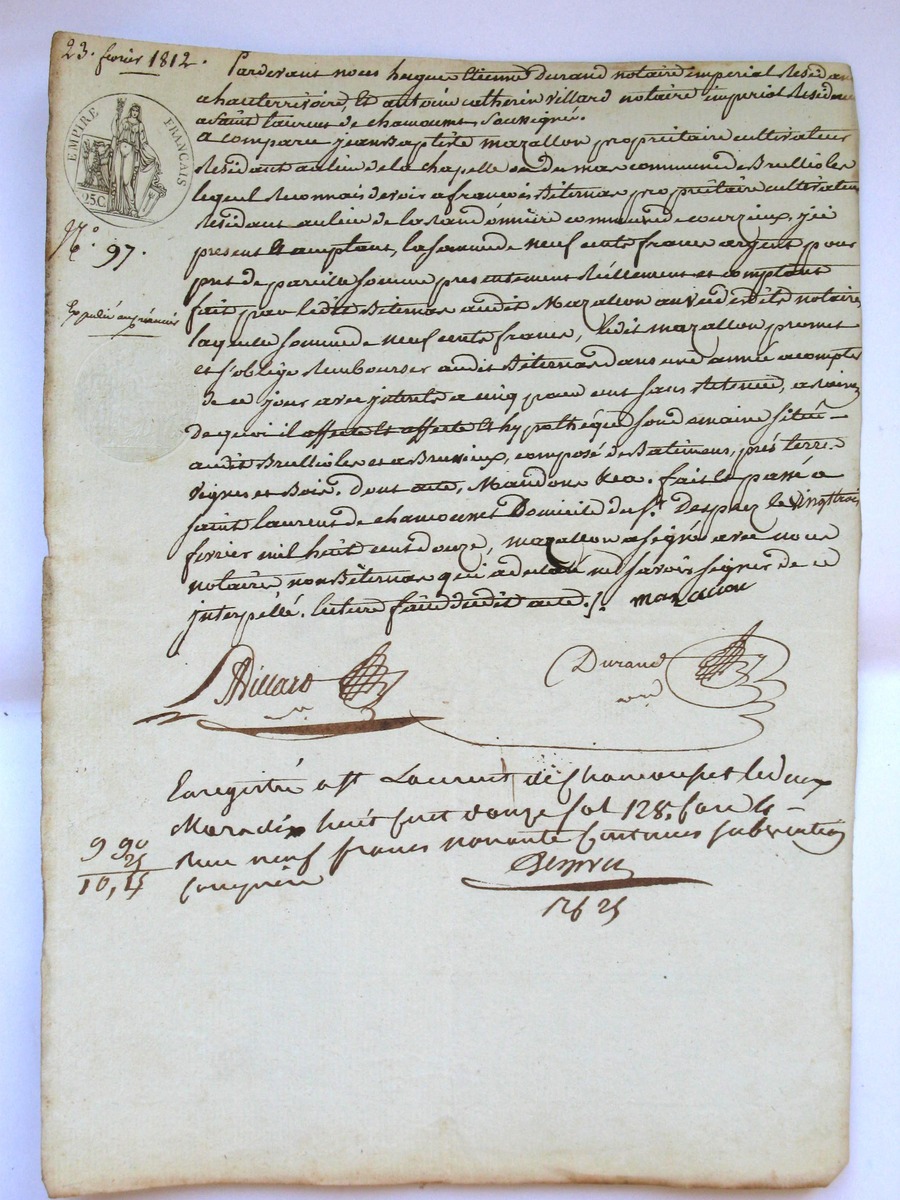 23. fevrier 1812.
EMPIRE FRANÇAIS
25C.
N.º 97.
Expedié au créancier
Pardevant nous hugue Etienne Durand notaire imperial Residant
a hauterrivoire, et antoine catherin Villard notaire imperial Residant
a Saint laurent de chamousset Soussignés.
a comparu jean Baptiste mazallon propriétaire cultivateur
Residant au lieu de la chapelle commune de Brullioles
lequel Reconnais devoir a francois Biternas propriétaire cultivateur
Residant au lieu de la commune de courzieux, ici
present et acceptant, la somme de neuf cents francs argent pour
pret de pareille somme presentement Réellement et comptant
fait par ledit Biternas audit Mazallon au vu desdits notaires
laquelle somme de neuf cents francs, ledit mazallon promet
et s'oblige Rembourser audit Biternas dans une année a compter
de ce jour avec interets a cinq pour cent sans Retenue, a
de quoi il affecte et hypothéque son domaine situé
audit Brullioles et a Brussieux, composé de Batimens, prés terre
vignes et Bois. Dont acte, Mandons &ca. fait et passé a
saint laurent de chamousset Domicile du Sr. Desprez le vingt trois
fevrier mil huit cent douze, mazallon a signé avec nous
notaire non Biternas qui a declaré ne savoir signer de ce
interpellé. lecture faite dudit acte. mazallon
Villard Durand
nre nre
Enregistré a St Laurent de Chamousset le deux
Mars dix huit cent douze fol 128, Case 4
Recu neuf francs nonante Centimes subvention
9 90
25
10,15
Comprise
Desprez
12625